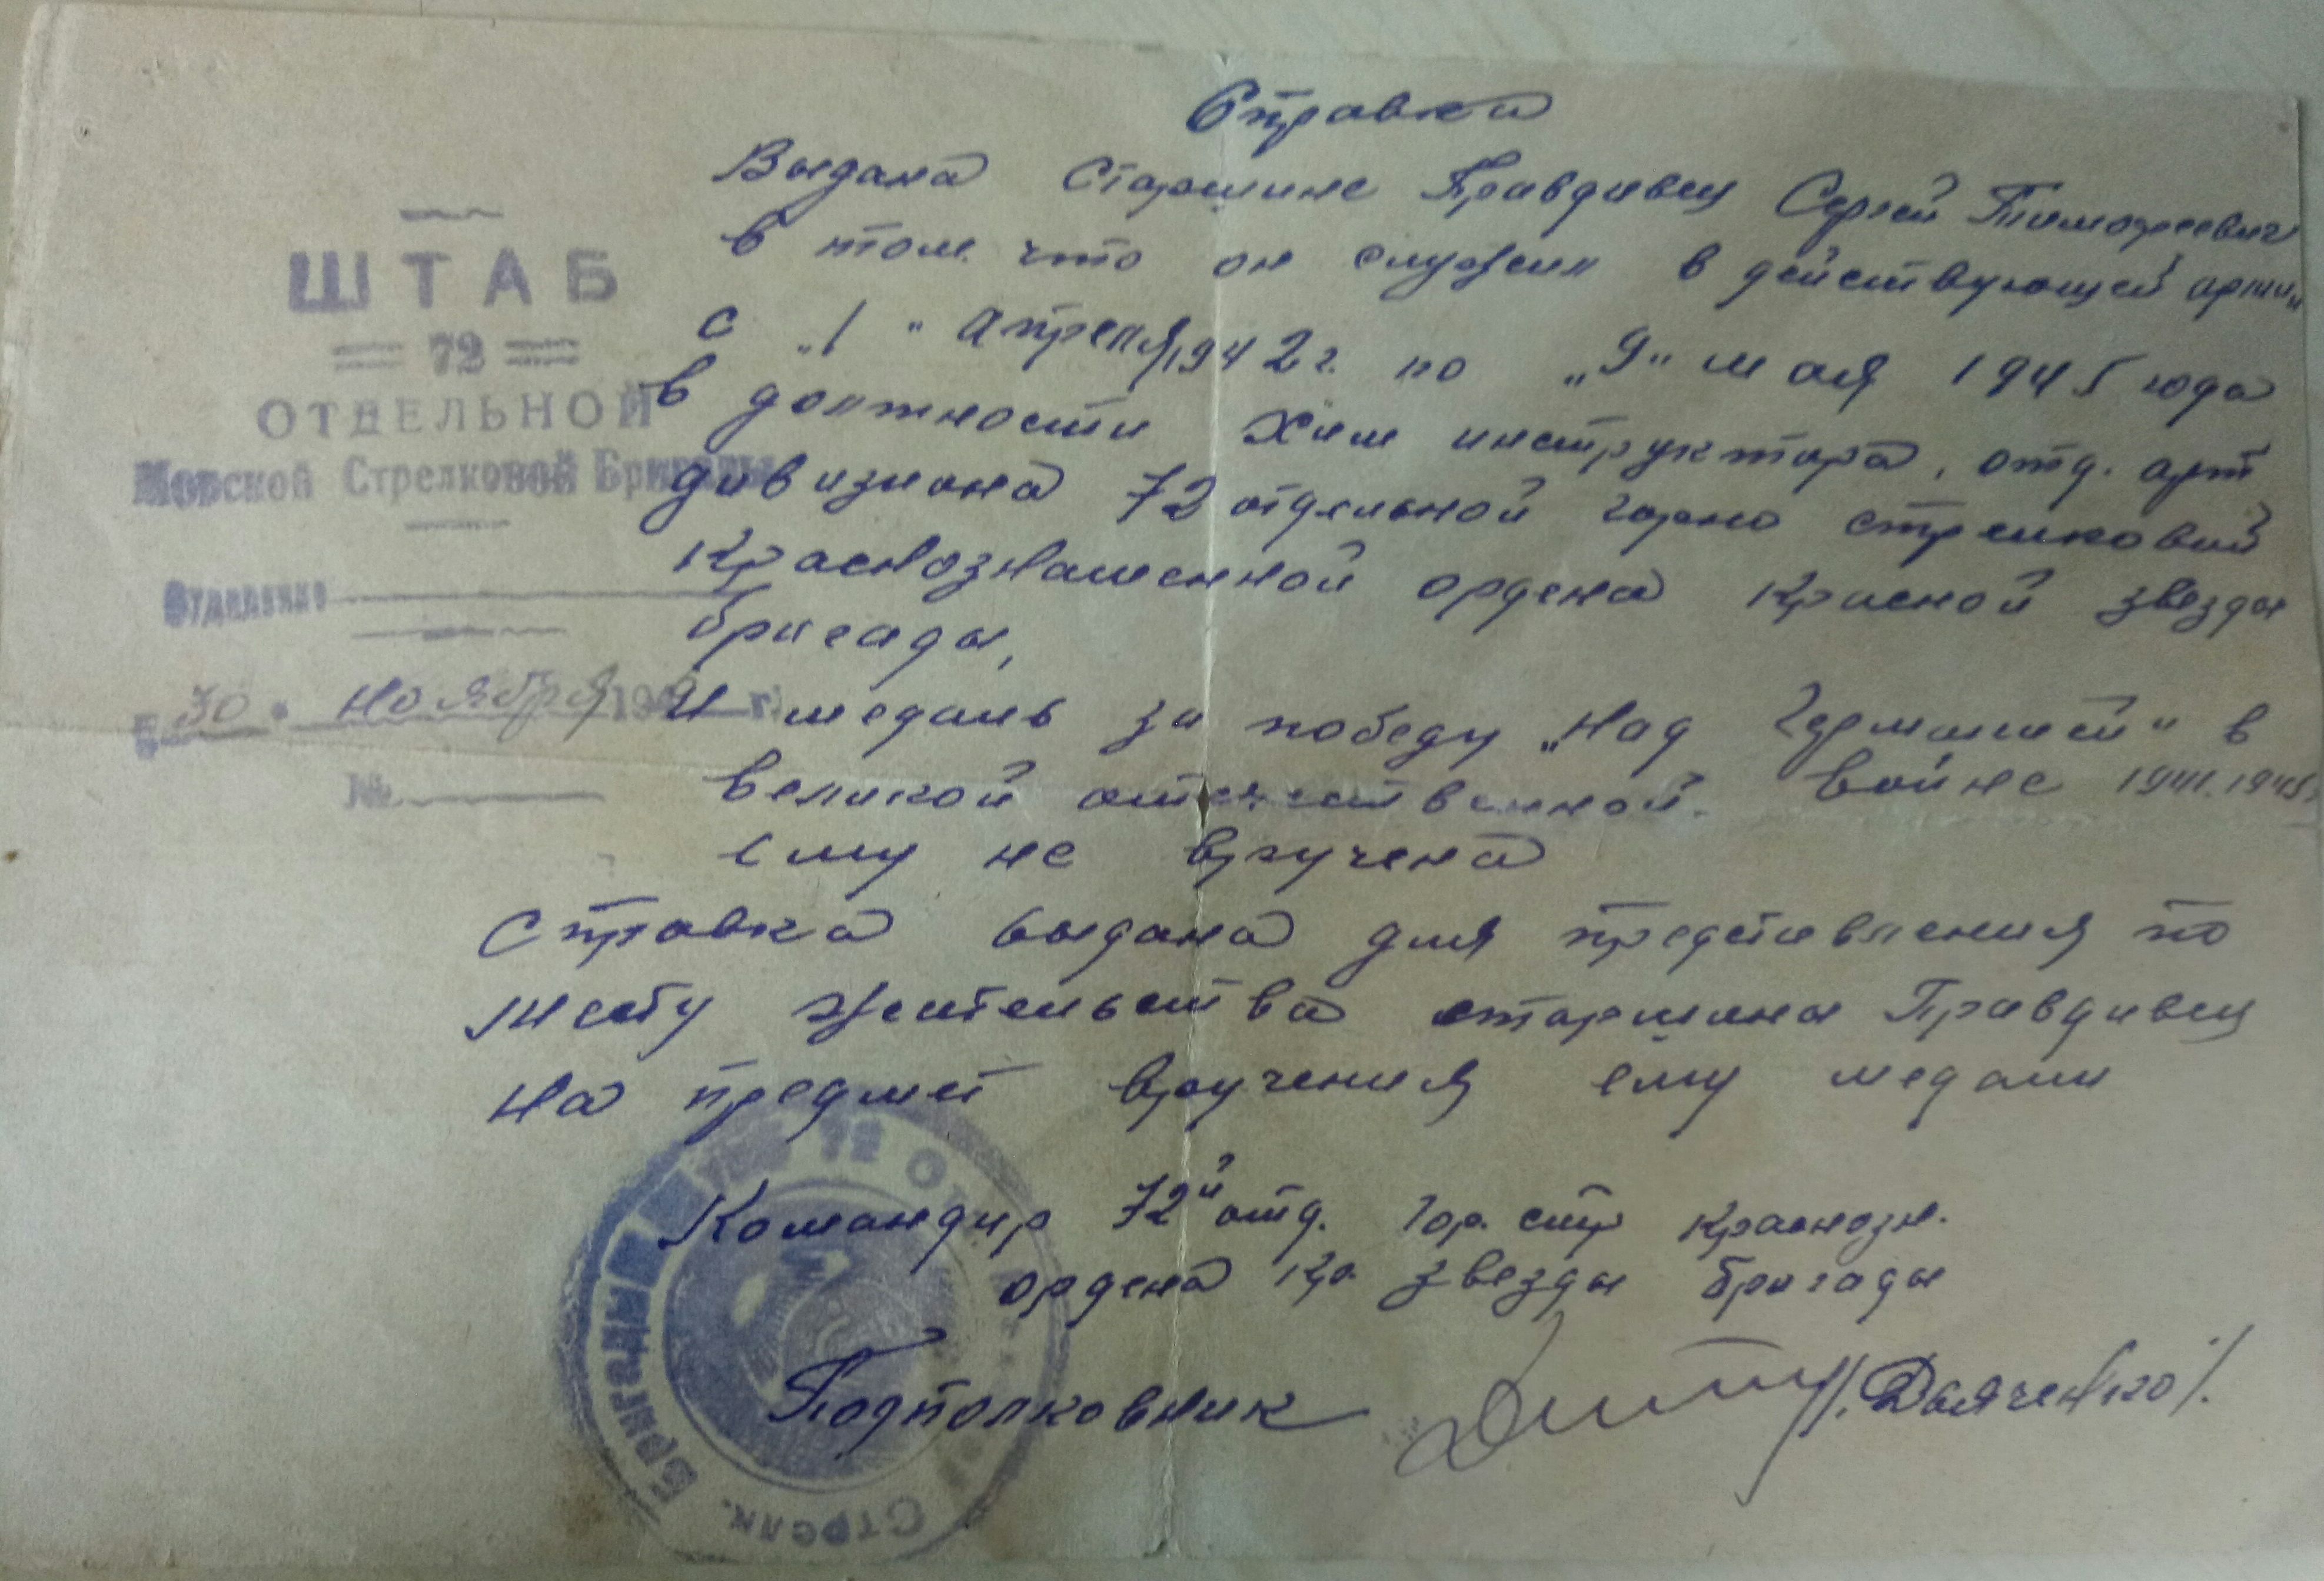 Справка
Выдана Старшине Правдивец Сергей Тимофеевич
в том что он служил в действующей армии
с „1" Апреля 1942 г. по „9" мая 1945 года
в должности Хим инструктора, отд. арт
дивизиона 72 отдельной горно стрелковой
Краснознаменной ордена Красной звезды
бригады,
И медаль за победу „Над Германией" в
великой отечественной. войне 1941.1945
ему не вручена
Справка выдана для представления по
месту жительства старшина Правдивец
на предмет вручения ему медали
Командир 72й отд. гор. стр краснозн.
ордена Кр. звезды бригады
Подполковник /.Дьяченко/.
ШТАБ
72
ОТДЕЛЬНОЙ
Морской Стрелковой Бригады
Отделение
30 ноября 19 г.
№
72
Стрелк. Бригады